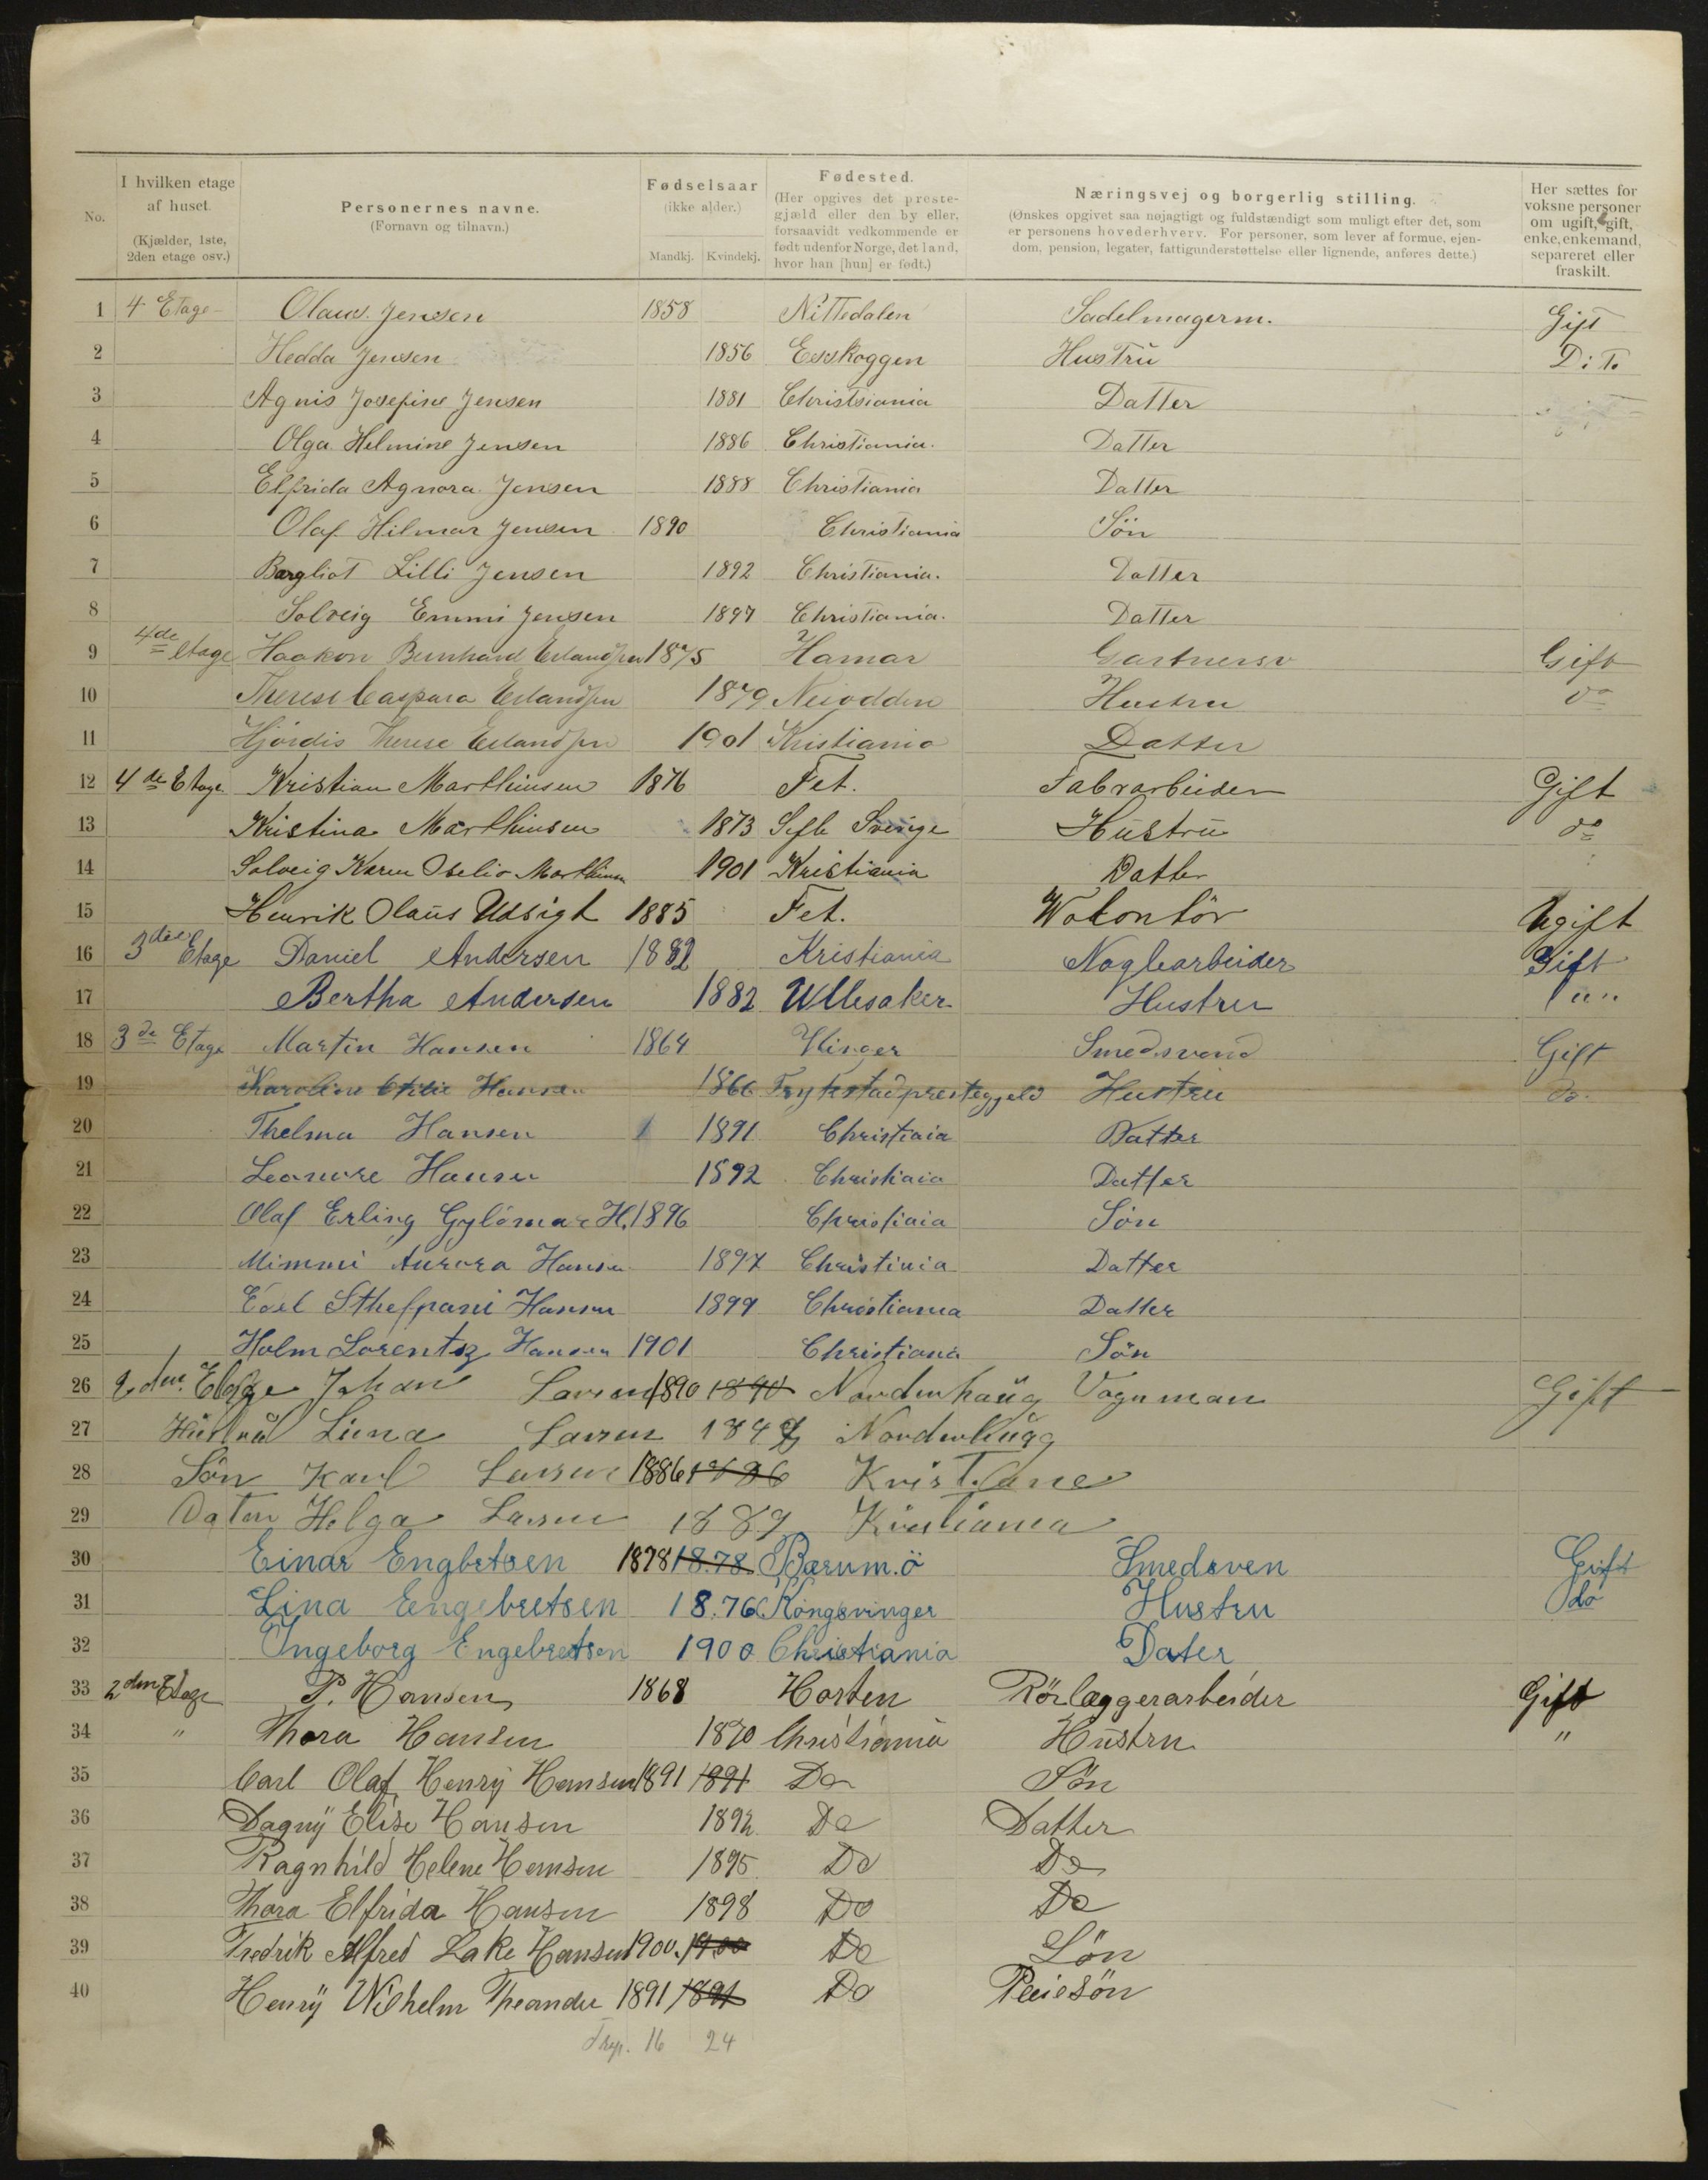 No.
I hvilken etage af huset. (Kjælder, 1ste, 2den etage osv.)
Personernes navne. (Fornavn og tilnavn.)
Fødselsaar (ikke alder.) Mandkj. Kvindekj.
Fødested. (Her opgives det prestegjæld eller den by eller, forsaavidt vedkommende er født udenfor Norge, det land, hvor han [hun] er født.)
Næringsvej og borgerlig stilling. (Ønskes opgivet saa nøjagtigt og fuldstændigt som muligt efter det, som er personens hovederhverv. For personer, som lever af formue, ejendom, pension, legater, fattigunderstøttelse eller lignende, anføres dette.)
Her sættes for voksne personer om ugift, gift, enke, enkemand, separeret eller fraskilt.
1 4 Etage Olaus Jensen 1858 Nittedalen Sadelmagerm. Gift
2 Hedda Jensen 1856 Esskoggen Hustrü D: To
3 Agnis Josefine Jensen 1881 Christsiania Datter
4 Olga Helmine Jensen 1886 Christiania. Datter
5 Elfrida Agnora Jensen 1888 Christiania Datter
6 Olaf Hilmar Jensen 1890 Christiania Sön
7 Bergliot Lilli Jensen 1892 Christiania. Datter
8 Solveig Emmi Jensen 1897 Christiania. Datter
9 4de etage Haakon Bernhard Erlandsen 1875 Hamar Gartnersv Gift
10 Therese Caspara Erlandsen 1879 Nesodden Hustru do
11 Hjördis Therese Erlandsen 1901 Kristiania Datter
12 4de Etage Kristian Marthinsen 1876 Fet. Fabrarbeider Gift
13 Kristina Marthinsen 1873 Sefle Sverige Hüstrü do
14 Solveig Karen Marthinsen 1901 Kristiania Datter
15 Henrik Olaüs Udsigt 1885 Fet. Wolontör Ugift
16 3die Etage Daniel Andersen 1882 Kristiania Naglearbeider Gift
17 Bertha Andersen 1882 Ullesaker Hustru " "
18 3de Etage Martin Hansen 1864 Vinger Smedsvend Gift
19 Karoline Otilie Hansen 1866 Frykstad prestegjeld Hustru do.
20 Thelma Hansen 1891 Christiaia Datter
21 Leonore Hansen 1892 Christiaia Datter
22 Olaf Erling Gylómar H. 1896 Christiaia Sön
23 Mimmi Aurora Hansen 1897 Christinia Datter
24 Edel Sthefpani Hansen 1899 Christiania Datter
25 Holm Lorentz Hansen 1901 Christiana Sön
26 2den Etage Johan Larsen 1840 Norderhaüg Vognman Gift
27 Hüstrü Lina Larsen 1847 Norderhügg
28 Sön Karl Larsen 1886 1886 Kristiane
29 Dater Helga Larsen 1889 Kristiania
30 Einar Engbretsen 1878 1878 Bærum.ö Smedsven Gift
31 Lina Engebretsen 18.76 Kongsvinger Hustru do
32 Ingeborg Engebretsen 1900 Christiania Dater
33 2den Etage P. Hansen 1868 Horten Rörlæggerarbeider Gift
34 " Thora Hansen 1870 Christiania Hüstru "
35 Carl Olaf Henrÿ Hansen 1891 1891 Do Sön
36 Dagnÿ Elise Hansen 1892 Do Datter
37 Ragnhild Helene Hansen 1895 Do Do
38 Thora Elfrida Hansen 1898 Do Do
39 Fredrik Alfred Lake Hansen 1900. 1900 Do Sön
40 Henrÿ Wilhelm Theander 1891 1891 Do Pleiesön
16 24